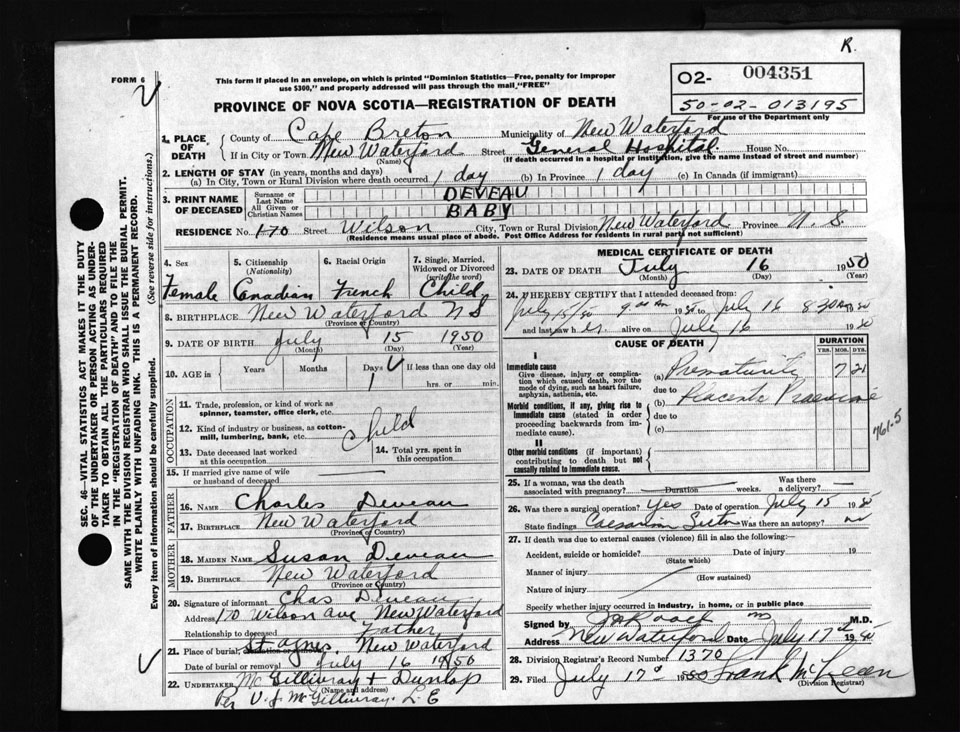 R.
FORM 6
This form if placed in an envelope, on which is printed "Dominion Statistics—Free, penalty for improper
use $300," and properly addressed will pass through the mail "FREE"
02- 004351
50-02-013195
For use of the Department only
PROVINCE OF NOVA SCOTIA—REGISTRATION OF DEATH
1. PLACE OF DEATH
County of Cape Breton Municipality of New Waterford
If in City or Town New Waterford Street General Hospital. House No.
(Name) (If death occurred in a hospital or institution, give the name instead of street and number)
2. LENGTH OF STAY (in years, months and days)
(a) In City, Town or Rural Division where death occurred 1 day (b) In Province 1 day (c) In Canada (if immigrant)
3. PRINT NAME OF DECEASED
Surname or Last Name DEVEAU
All Given or Christian Names BABY
RESIDENCE No. 170 Street Wilson City, Town or Rural Division New Waterford Province N.S
(Residence means usual place of abode. Post Office Address for residents in rural parts not sufficient)
4. Sex Female
5. Citizenship (Nationality) Canadian
6. Racial Origin French
7. Single, Married, Widowed or Divorced (write the word) Child
8. BIRTHPLACE New Waterford NS
(Province or Country)
9. DATE OF BIRTH July 15 1950
(Month) (Day) (Year)
10. AGE in Years Months Days 1 If less than one day old
hrs. or min.
OCCUPATION
11. Trade, profession, or kind of work as
spinner, teamster, office clerk, etc.
12. Kind of industry or business, as cotton-
mill, lumbering, bank, etc.
Child
13. Date deceased last worked
at this occupation
14. Total yrs. spent in
this occupation
15. If married give name of wife
or husband of deceased
FATHER
16. NAME Charles Deveau
17. BIRTHPLACE New Waterford
(Province or Country)
MOTHER
18. MAIDEN NAME Susan Deveau
19. BIRTHPLACE New Waterford
(Province or Country)
20. Signature of informant Chas Deveau
Address 170 Wilson Ave New Waterford
Relationship to deceased Father
21. Place of burial, St Agnes. New Waterford
Date of burial or removal July 16 1950
22. UNDERTAKER McGillivray + Dunlop
(Name and address)
Per V. J. McGillivray L.E
MEDICAL CERTIFICATE OF DEATH
23. DATE OF DEATH July 16 1950
(Month) (Day) (Year)
24. I HEREBY CERTIFY that I attended deceased from:
July 15/50 9.00 Am 1950 to July 16 8.30 Am 1950
and last saw her alive on July 16 1950
CAUSE OF DEATH
DURATION
YRS. MOS. DYS.
I
Immediate cause
Give disease, injury or complication
which caused death, not the
mode of dying, such as heart failure,
asphyxia, asthenia, etc.
(a) Prematurity 7 21
due to
Morbid conditions, if any, giving rise to
immediate cause (stated in order
proceeding backwards from immediate
cause).
(b) Placenta Praevia
due to
(c)
761-5
II
Other morbid conditions (if important)
contributing to death but not
causally related to immediate cause.
25. If a woman, was the death
associated with pregnancy? Duration weeks. Was there
a delivery?
26. Was there a surgical operation? Yes Date of operation July 15 1950
State findings Caesarian Section Was there an autopsy? no
27. If death was due to external causes (violence) fill in also the following:
Accident, suicide or homicide? Date of injury 19
(State which)
Manner of injury
(How sustained)
Nature of injury
Specify whether injury occurred in industry, in home, or in public place
Signed by M.D.
Address New Waterford Date July 17th 1950
28. Division Registrar's Record Number 1370
29. Filed July 17th 1950 Frank McLean
(Division Registrar)
SEC. 46—VITAL STATISTICS ACT MAKES IT THE DUTY
OF THE UNDERTAKER OR PERSON ACTING AS UNDERTAKER
TO OBTAIN ALL THE PARTICULARS REQUIRED
IN THE "REGISTRATION OF DEATH" AND TO FILE THE
SAME WITH THE DIVISION REGISTRAR WHO SHALL ISSUE THE BURIAL PERMIT.
WRITE PLAINLY WITH UNFADING INK. THIS IS A PERMANENT RECORD.
Every item of information should be carefully supplied. (See reverse side for instructions.)